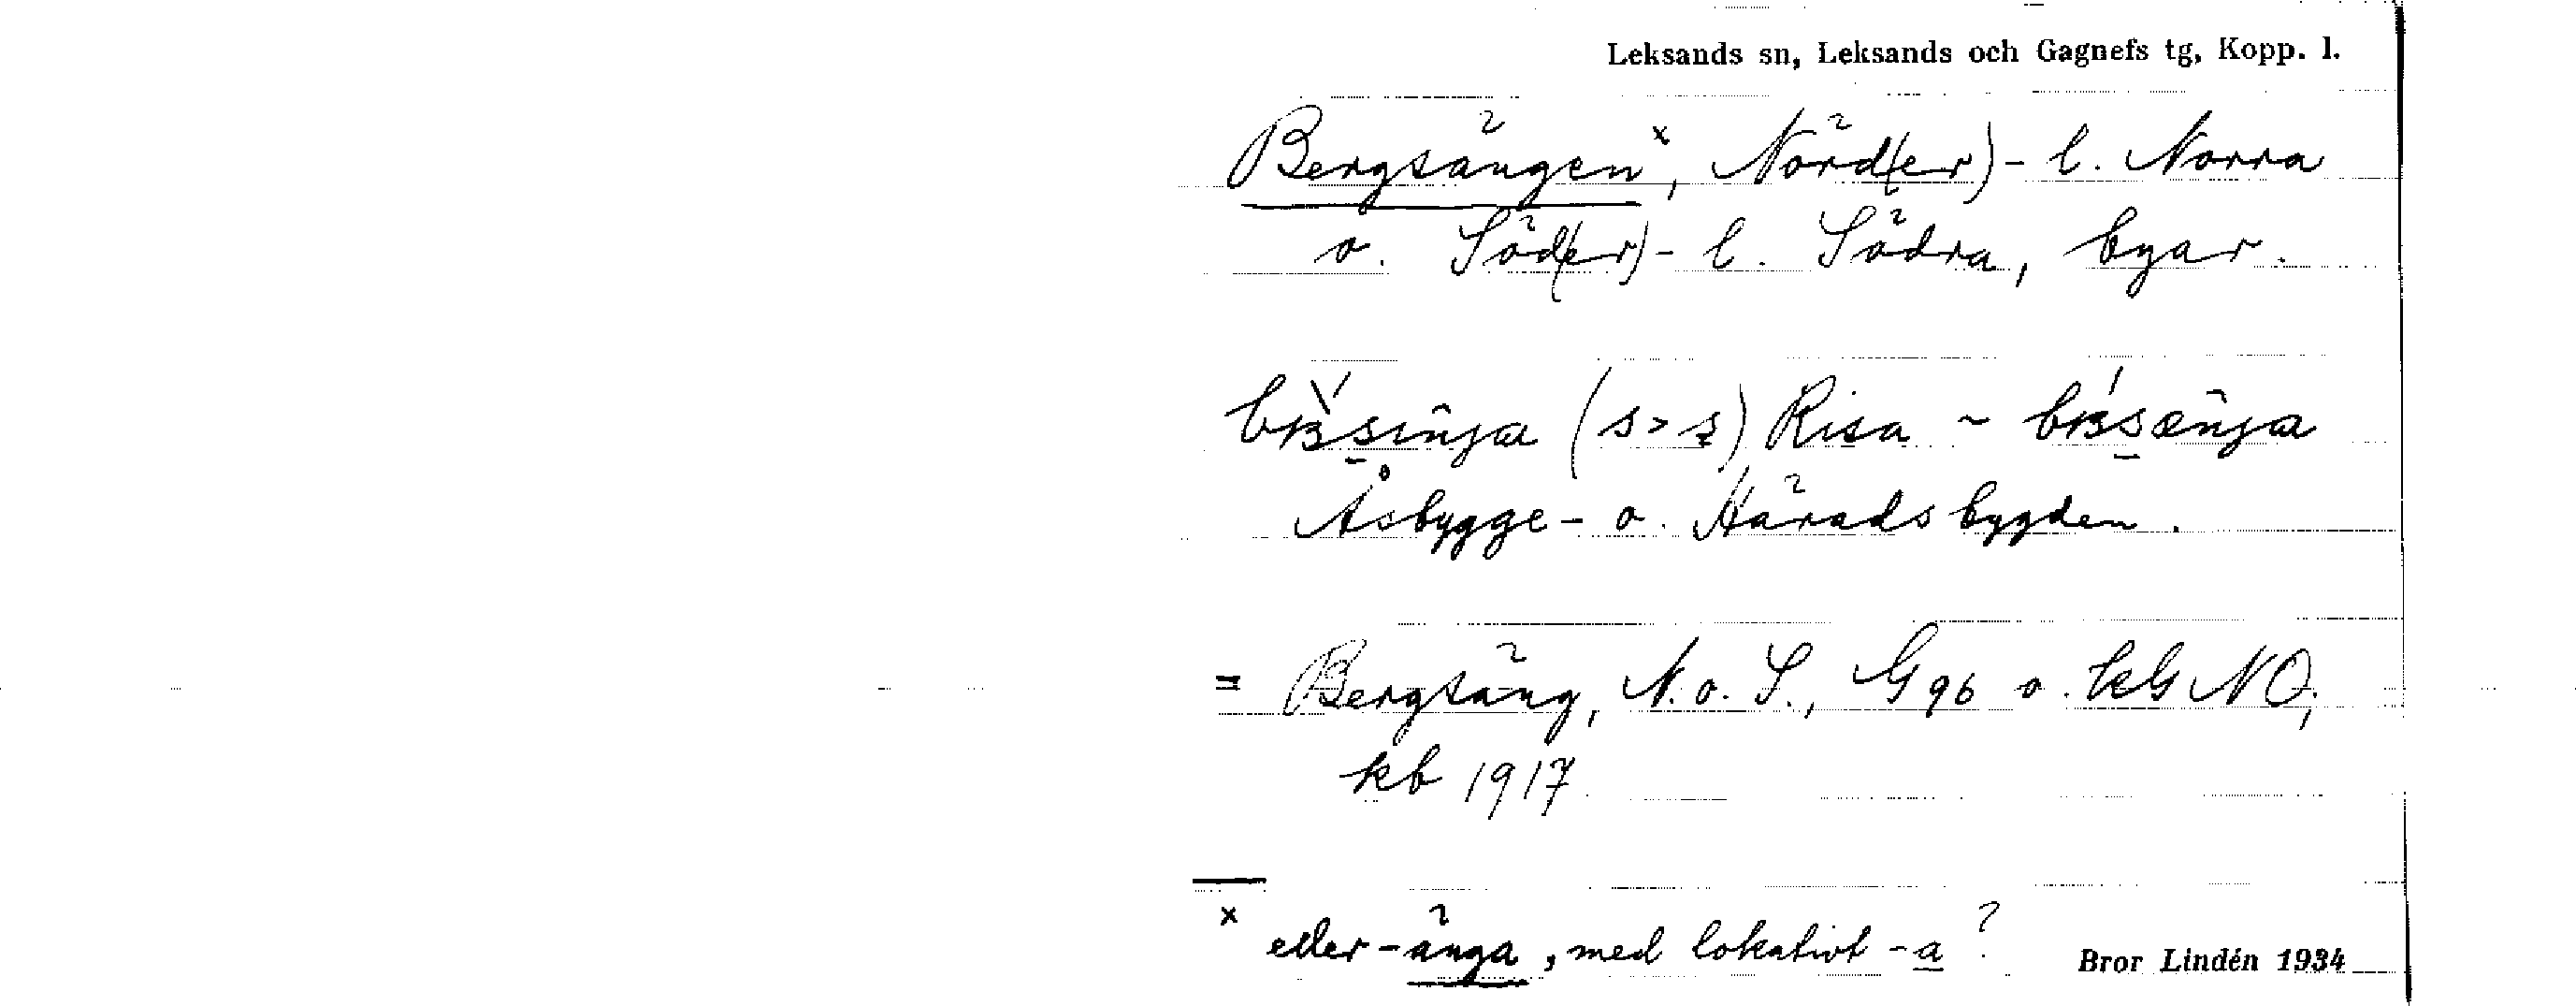 Leksands sn, Leksands och Gagnefs tg, Kopp. l.
Bergsängen×, Nörd(er)- l. Norra
o. Söd(er)- l. Södra, byar.
(s > s̠) Risa ~
Åsbygge- o. Häradsbygden.
= Bergsäng, N. o. S., G 96 o. kG NO,
kb 1917.
× eller -änga, med lokativt -a?
Bror Lindén 1934